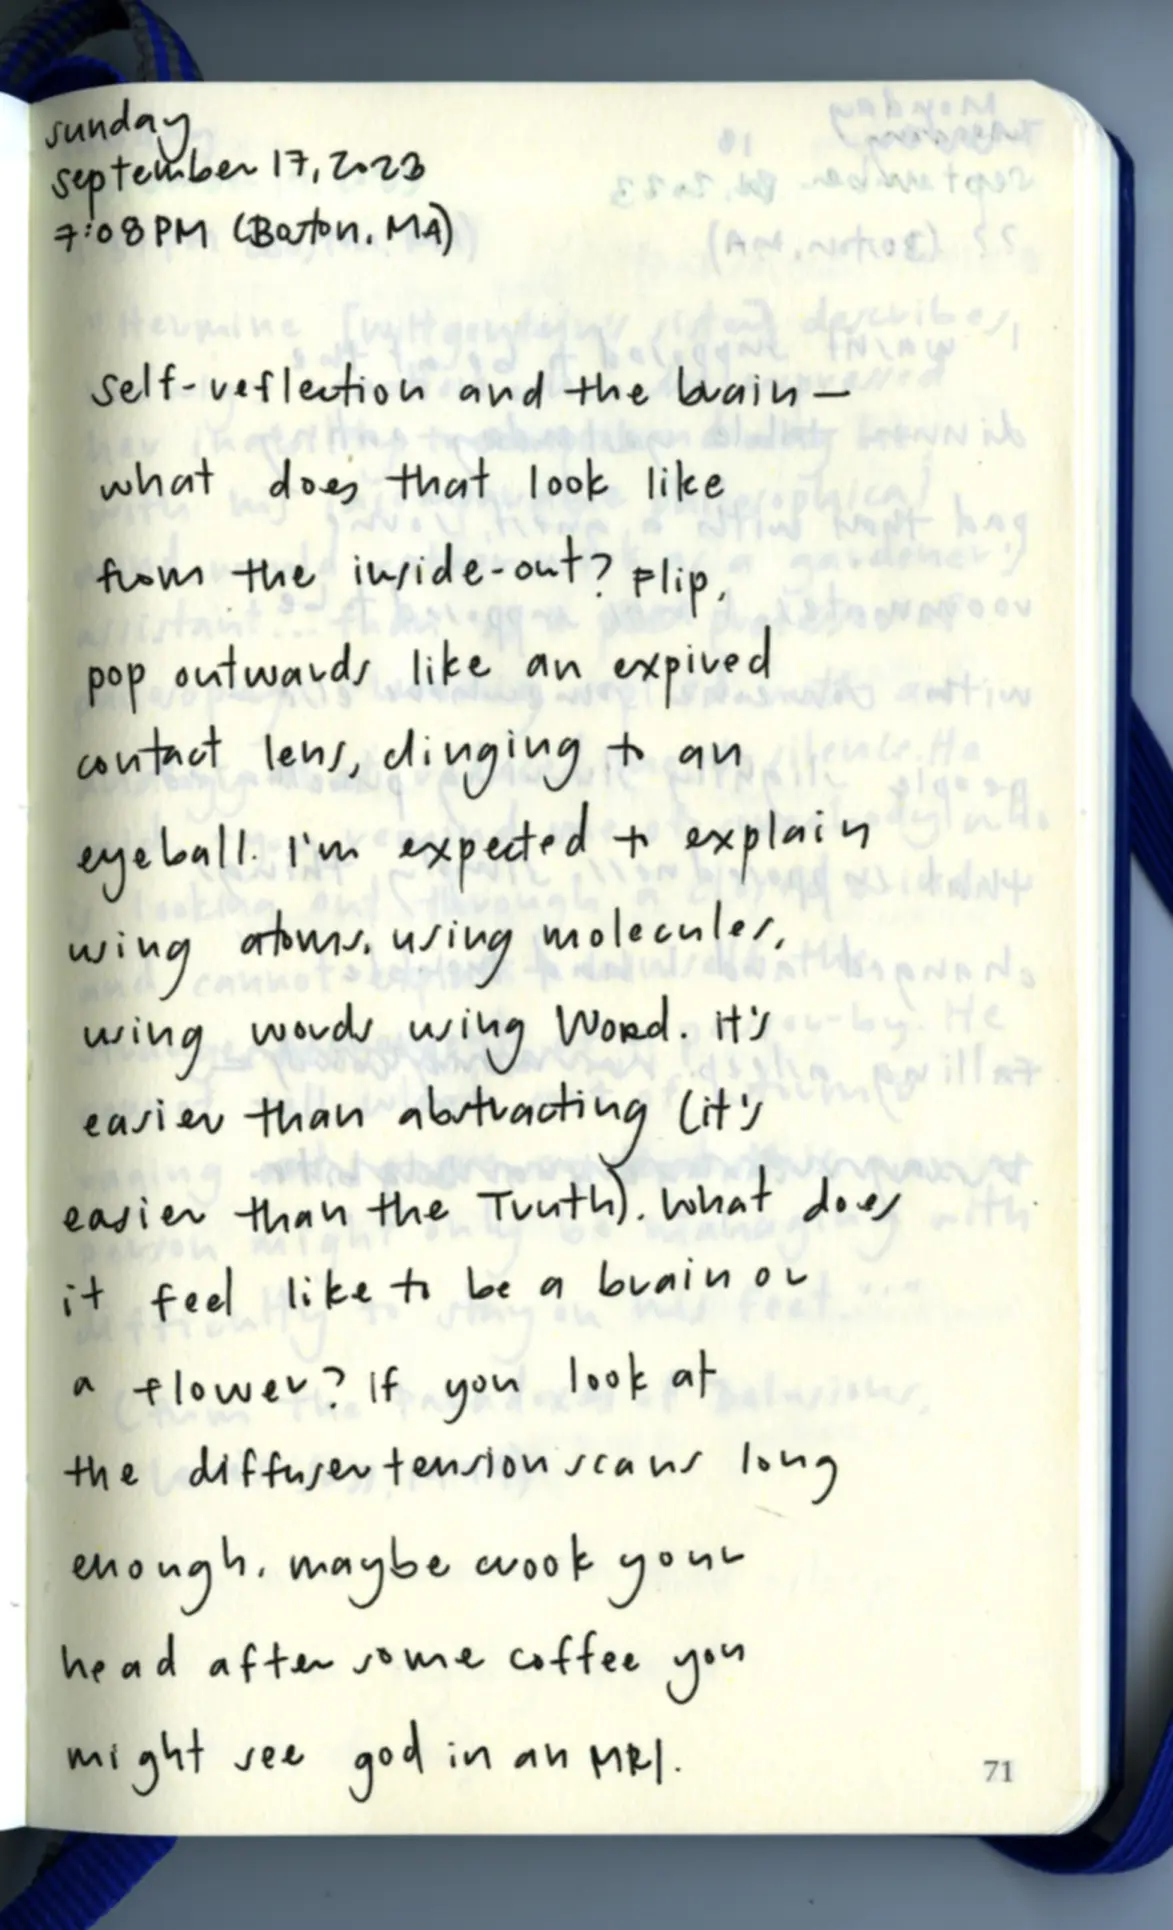 sunday
september 17, 2023
7:08 PM (Boston, MA)
self-reflection and the brain —
what does that look like
from the inside-out? Flip,
pop outwards like an expired
contact lens, clinging to an
eyeball. I'm expected to explain
using atoms, using molecules,
using words using Word. it's
easier than abstracting (it's
easier than the Truth). What does
it feel like to be a brain or
a flower? If you look at
the diffuser tension scans long
enough, maybe crook your
head after some coffee you
might see god in an MRI.
71